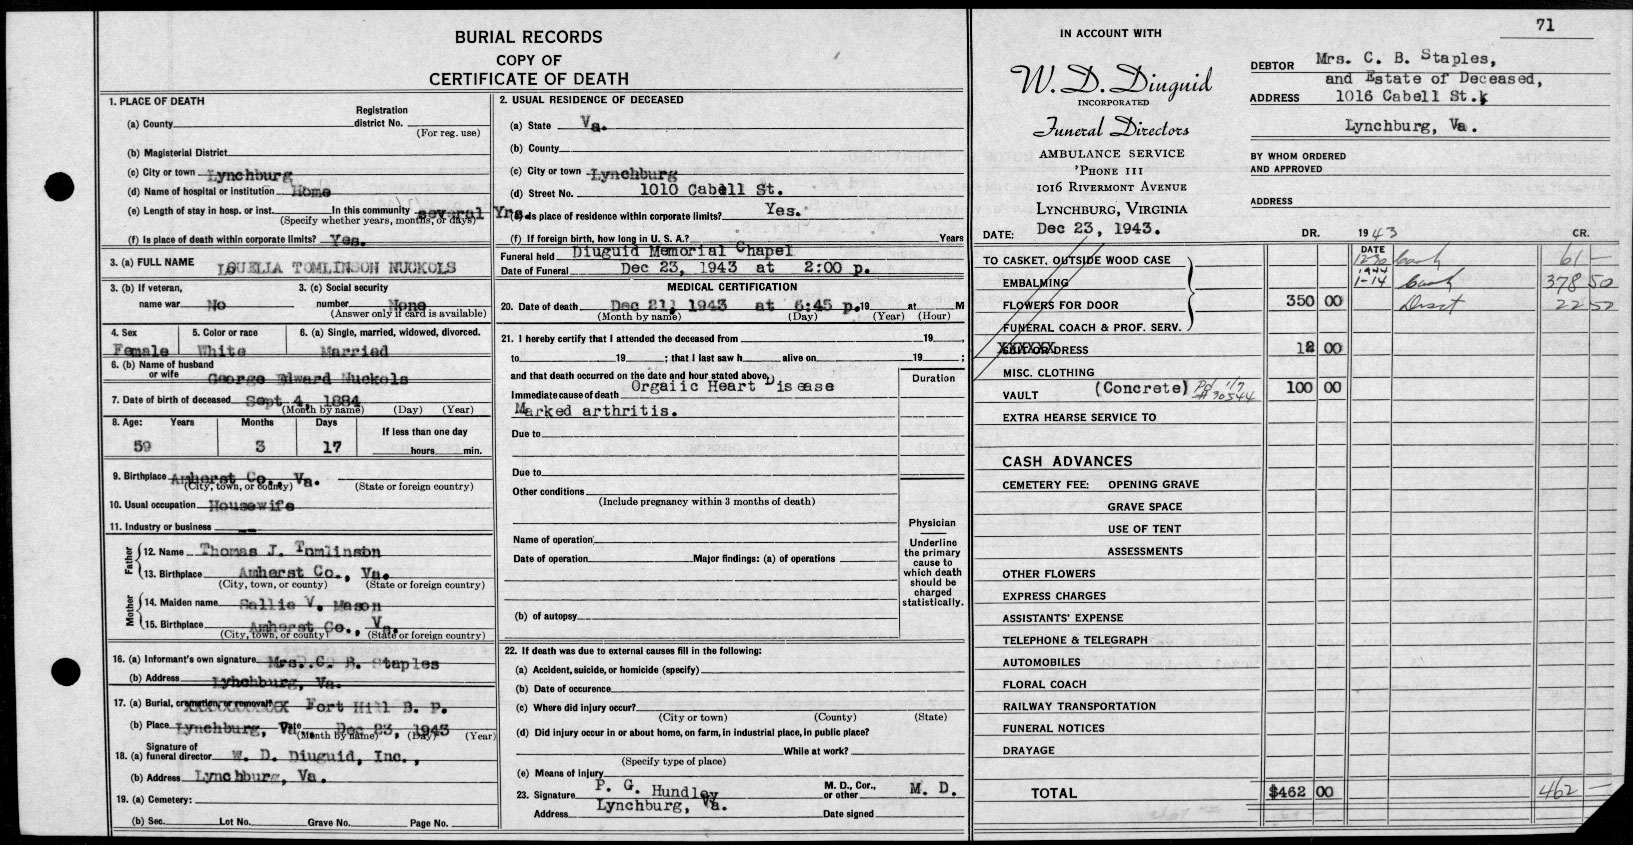 BURIAL RECORDS
COPY OF
CERTIFICATE OF DEATH
1. PLACE OF DEATH
Registration
(a) County district No.
(For reg. use)
(b) Magisterial District
(c) City or town Lynchburg
(d) Name of hospital or institution Home
(e) Length of stay in hosp. or inst. In this community several Yrs.
(Specify whether years, months, or days)
(f) Is place of death within corporate limits? Yes.
3. (a) FULL NAME LOUELLA TOMLINSON NUCKOLS
3. (b) If veteran, 3. (c) Social security
name war No number None
(Answer only if card is available)
4. Sex 5. Color or race 6. (a) Single, married, widowed, divorced.
Female White Married
6. (b) Name of husband
or wife George Edward Nuckols
7. Date of birth of deceased Sept 4, 1884
(Month by name) (Day) (Year)
8. Age: Years Months Days If less than one day
59 3 17 hours min.
9. Birthplace Amherst Co., Va.
(City, town, or county) (State or foreign country)
10. Usual occupation Housewife
11. Industry or business --
Father
12. Name Thomas J. Tomlinson
13. Birthplace Amherst Co., Va.
(City, town, or county) (State or foreign country)
Mother
14. Maiden name Sallie V. Mason
15. Birthplace Amherst Co., Va.
(City, town, or county) (State or foreign country)
16. (a) Informant's own signature Mrs. C. B. Staples
(b) Address Lynchburg, Va.
17. (a) Burial, cremation, or removal? Fort Hill B. P.
(b) Place Lynchburg, Va. Date Dec 23, 1943
(Month by name) (Day) (Year)
Signature of
18. (a) funeral director W. D. Diuguid, Inc.,
(b) Address Lynchburg, Va.
19. (a) Cemetery:
(b) Sec. Lot No. Grave No. Page No.
2. USUAL RESIDENCE OF DECEASED
(a) State Va.
(b) County
(c) City or town Lynchburg
(d) Street No. 1010 Cabell St.
(e) Is place of residence within corporate limits? Yes.
(f) If foreign birth, how long in U. S. A.? Years
Funeral held Diuguid Memorial Chapel
Date of Funeral Dec 23, 1943 at 2:00 p.
MEDICAL CERTIFICATION
20. Date of death Dec 21, 1943 at 6:45 p. 19 at M
(Month by name) (Day) (Year) (Hour)
21. I hereby certify that I attended the deceased from 19 ,
to 19 ; that I last saw h alive on 19 ;
and that death occurred on the date and hour stated above. Duration
Immediate cause of death Orgaiic Heart Disease
Marked arthritis.
Due to
Due to
Other conditions
(Include pregnancy within 3 months of death)
Name of operation
Date of operation Major findings: (a) of operations
(b) of autopsy
Physician
Underline
the primary
cause to
which death
should be
charged
statistically.
22. If death was due to external causes fill in the following:
(a) Accident, suicide, or homicide (specify)
(b) Date of occurence
(c) Where did injury occur?
(City or town) (County) (State)
(d) Did injury occur in or about home, on farm, in industrial place, in public place?
While at work?
(Specify type of place)
(e) Means of injury
23. Signature P. G. Hundley M. D., Cor., or other M. D.
Address Lynchburg, Va. Date signed
71
IN ACCOUNT WITH
W. D. Diuguid
INCORPORATED
Funeral Directors
AMBULANCE SERVICE
'PHONE 111
1016 RIVERMONT AVENUE
LYNCHBURG, VIRGINIA
DATE: Dec 23, 1943.
DEBTOR Mrs. C. B. Staples,
and Estate of Deceased,
ADDRESS 1016 Cabell St.
Lynchburg, Va.
BY WHOM ORDERED
AND APPROVED
ADDRESS
DR. 1943 CR.
DATE
TO CASKET, OUTSIDE WOOD CASE 12-30 Cash 61 —
EMBALMING 1944 1-14 Cash 378 50
FLOWERS FOR DOOR 350 00 Disct 22 50
FUNERAL COACH & PROF. SERV.
XXXXXX
SUIT OR DRESS 12 00
MISC. CLOTHING
VAULT (Concrete) Pd 1/7 #30544 100 00
EXTRA HEARSE SERVICE TO
CASH ADVANCES
CEMETERY FEE: OPENING GRAVE
GRAVE SPACE
USE OF TENT
ASSESSMENTS
OTHER FLOWERS
EXPRESS CHARGES
ASSISTANTS' EXPENSE
TELEPHONE & TELEGRAPH
AUTOMOBILES
FLORAL COACH
RAILWAY TRANSPORTATION
FUNERAL NOTICES
DRAYAGE
TOTAL $462 00 462 —